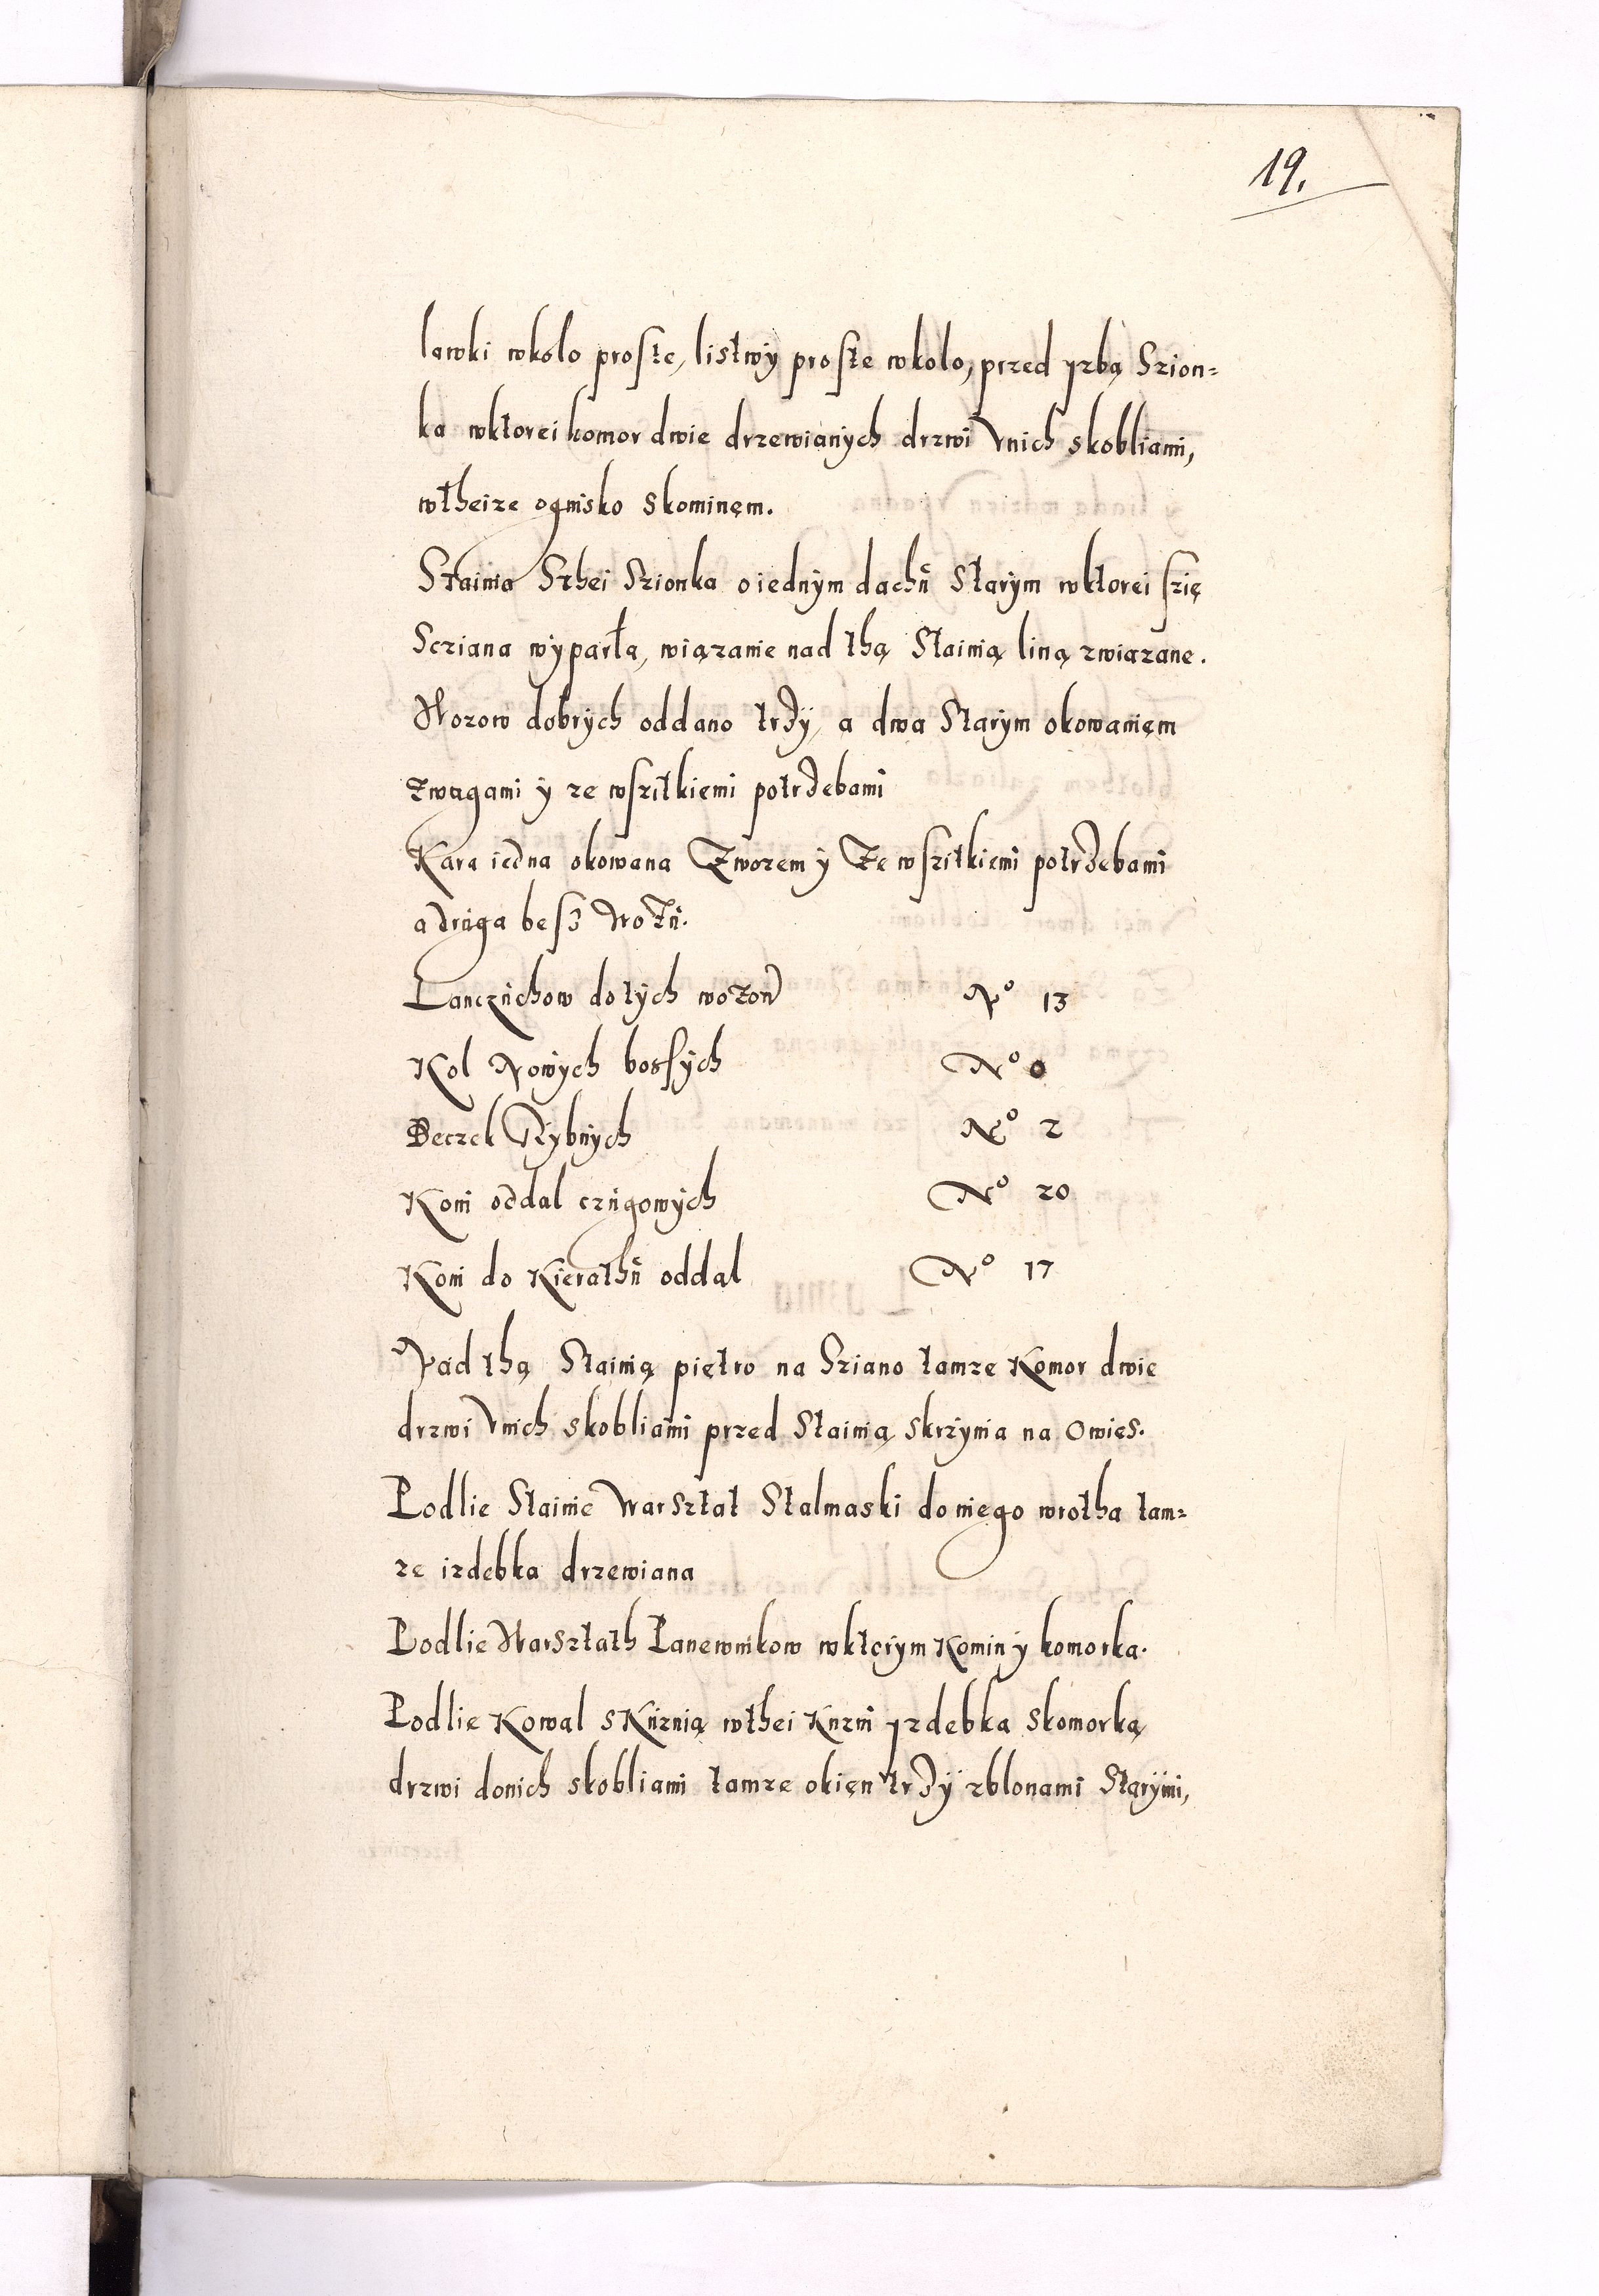 19.
lawki wkolo proste, listwy proste wkolo, przed yzbą Szion=
ka wktorei komor dwie drzewianÿch drzwi Vnich skobliami,
wtheize ognisko skominęm.
Stainia Szbei Szionka o iednÿm dachů Starÿm wktorei szię
Scziana wÿparła, wiązanie nad thą Stainią liną zwiazane.
Wozow dobrÿch oddano trzÿ, a dwa Starÿm okowanięm
zwagami ÿ ze wszitkięmi potrzebami
Kara iedna okowana Zworem ÿ Ze wszitkięmi potrzebami
a drůga besz WoZů.
Lanczůchow do tÿch woZow No 13
Kol Nowÿch bossÿch No 0
Beczek Rÿbnÿch No 2
Koni oddal czůgowÿch No 20
Koni do Kierathů oddal No 17
Nad thą Stainią piętro na Sziano tamze Komor dwie
drzwi Vnich skobliami przed Stainią skrzÿnia na Owies.
Podlie Stainie Warsztat Stalmaski do niego wrotha tam=
ze izdebka drzewiana
Podlie Warsztath Panewnikow wktorÿm Komin ÿ komorka.
Podlie Kowal sKůznią wthei Kuzni yzdebka skomorką
drzwi donich skobliami tamze okięn trzÿ zblonami Starÿmi,